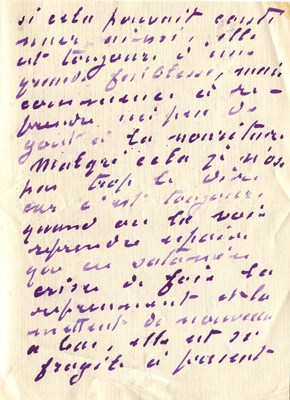 si cela pouvait conti
nuer ainsi, elle
est toujours d'une
grande faiblesse, mais
commence à re-
prendre un peu de
goût à la nouriture
Malgré cela je n'ose
pas trop le dire
car c'est toujours
quand on la voit
reprendre espoir
que ces satanées
crise de foie la
reprennent et la
mettent de nouveau
a bas, elle est si
fragile à present